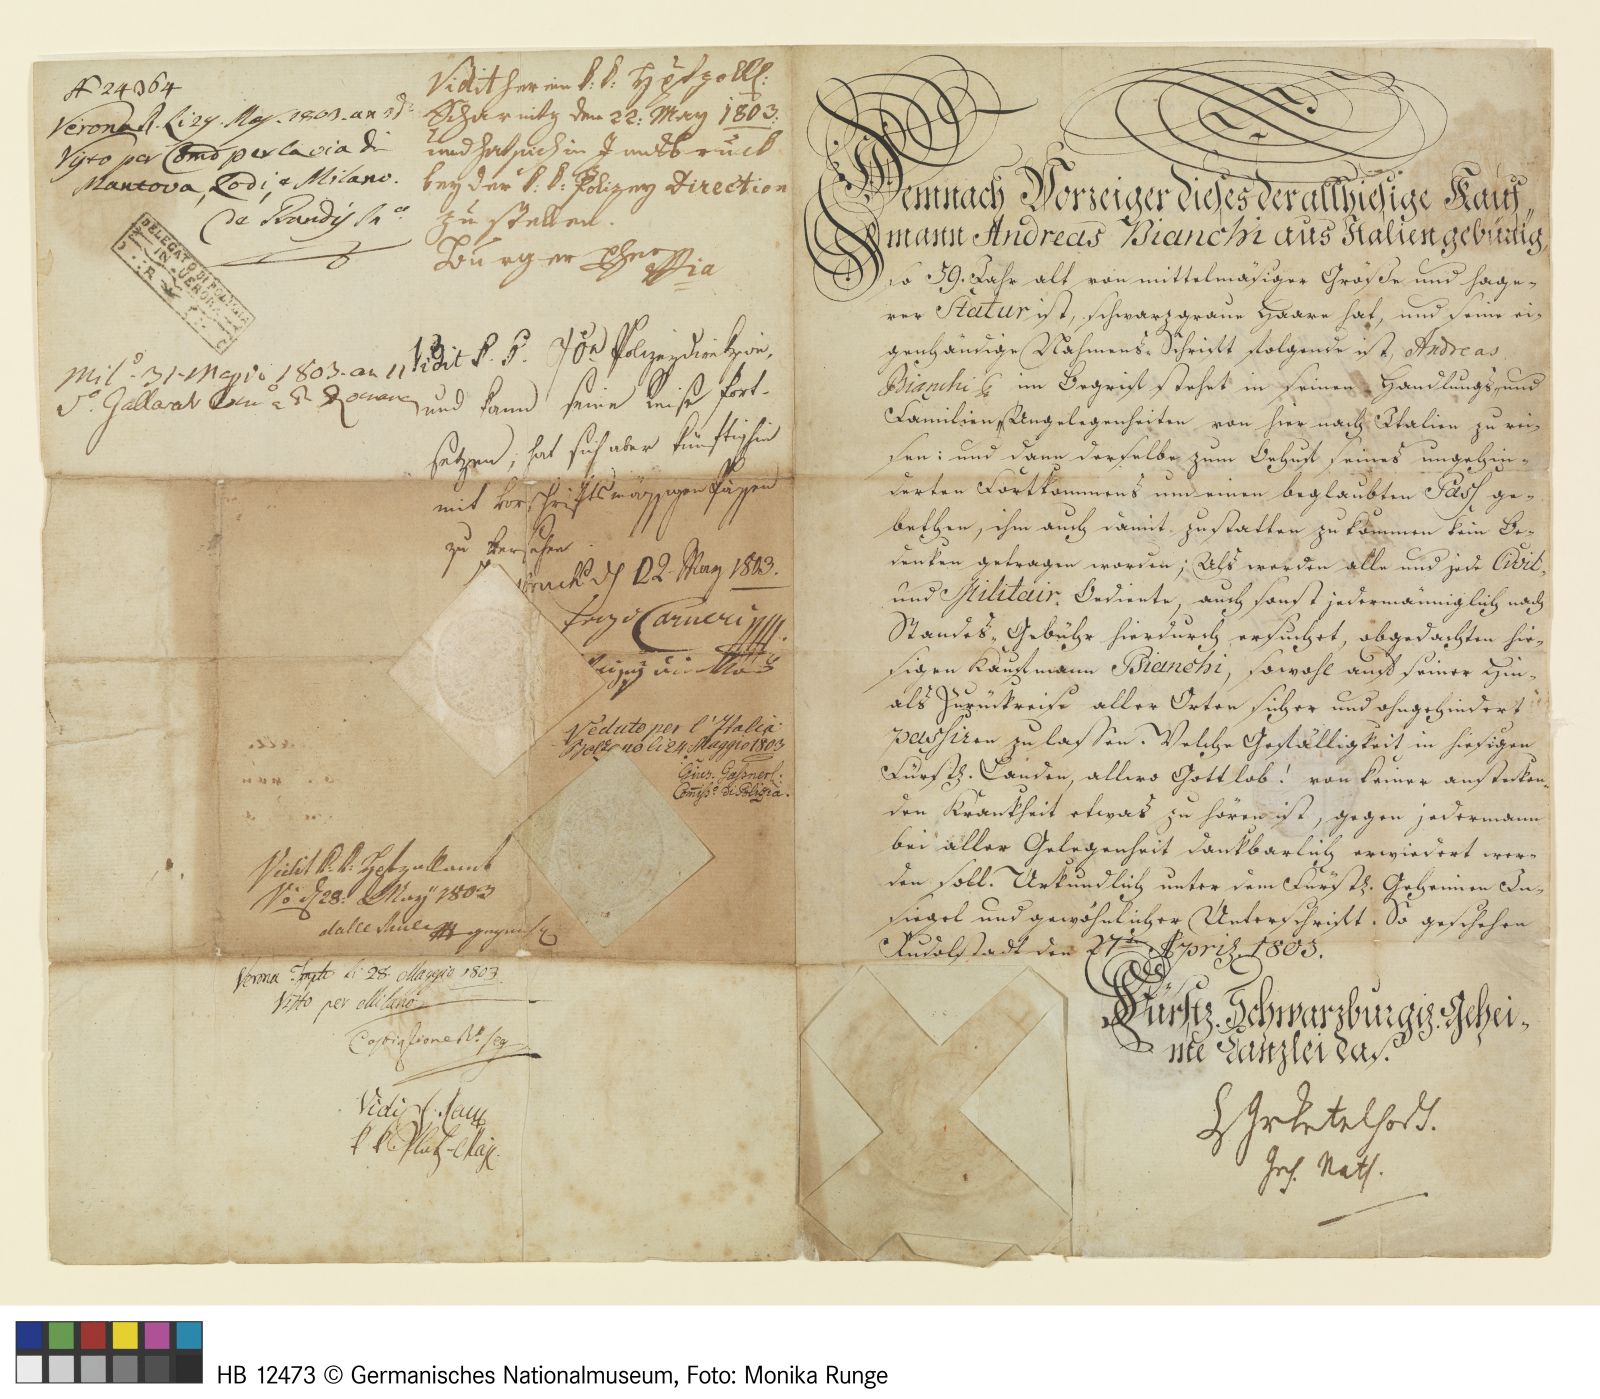 № 24364
Verona li 29. Mag. 1803.
Visto per Como per la via di
Mantova, Lodi, e Milano.
DELEGATO DI POLIZIA
IN VERONA
Milo. 31. Maggio 1803.
Vidit herein k: k:
Scharnitz den 22: May 1803.
und hat sich in Innsbruck
bey der k: k: Polizey Direction
zu stellen.
Burger
Vidit k. k. Polizeydirekzion,
und kann seine Reise fort-
setzen, hat sich aber künftighin
mit vorschriftsmässigen Pässen
zu versehen
22. May 1803.
Carneri
Veduto per l'Italia
li 24 Maggio 1803
Commisso. di Polizia.
Vidit k. k.
28. May 1803
Verona li 28. Maggio 1803
Visto per Milano
Vidi
k k Platz-Maj.
Demnach Vorzeiger dieses der allhiesige Kauf-
mann Andreas Bianchi aus Italien gebürtig,
so 59. Jahr alt von mittelmäsiger Größe und hage-
rer Statur ist, schwarzgraue Haare hat, und seine ei-
genhändige Nahmens-Schrift folgende ist, Andreas
Bianchi im Begrif stehet in seinen Handlungs- und
Familien-Angelegenheiten von hier nach Italien zu rei-
sen: und dann derselbe zum Behuf seines ungehin-
derten Fortkommens um einen beglaubten Pass ge-
bethen, ihm auch damit zustatten zu kommen kein Be-
denken getragen worden; Als werden alle und jede Civil-
und Militair-Bediente, auch sonst jedermänniglich nach
Standes-Gebühr hierdurch ersuchet, obgedachten hie-
sigen Kaufmann Bianchi, sowohl auf seiner Hin-
als Zurückreise aller Orten sicher und ohngehindert
passiren zu lassen. Welche Gefälligkeit in hiesigen
Fürstl. Landen, allwo Gott lob! von keiner anstecken-
den Krankheit etwas zu hören ist, gegen jedermann
bei aller Gelegenheit dankbarlich erwiedert wer-
den soll. Urkundlich unter dem Fürstl. Geheimen In-
siegel und gewöhnlicher Unterschrift. So geschehen
Rudolstadt den 27ten April. 1803.
Fürstl. Schwarzburgl. Gehei-
me Canzlei das.
Ketelhodt.
Geh. Rath.
HB 12473 © Germanisches Nationalmuseum, Foto: Monika Runge